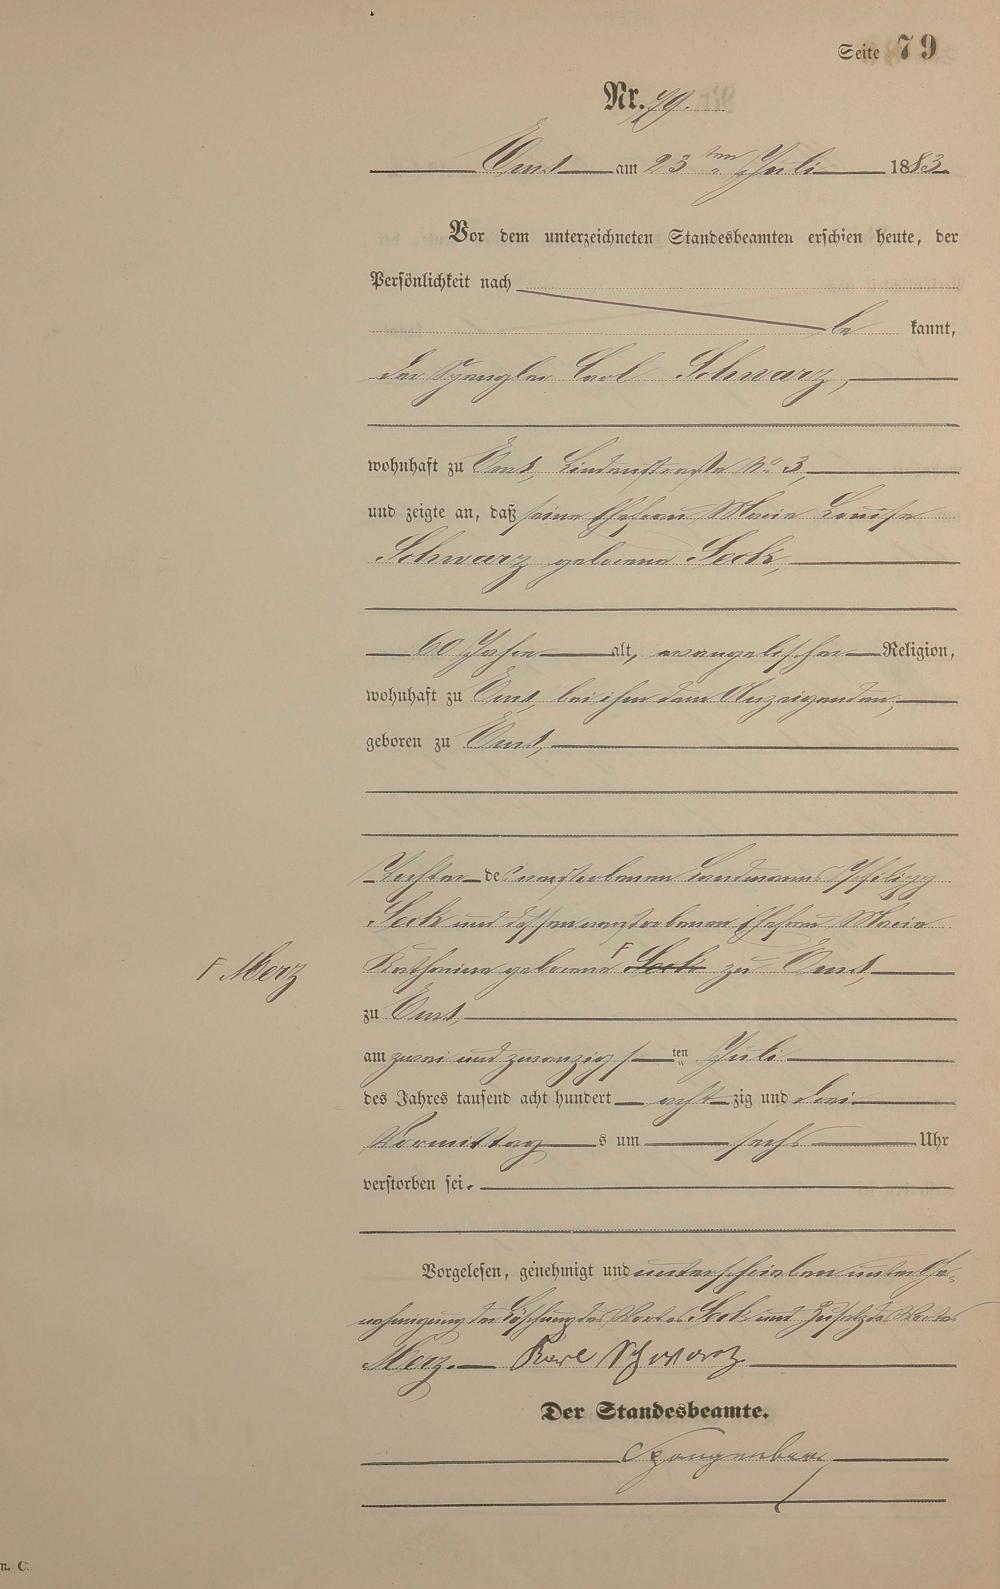 Seite 79
Nr. 79.
Ems am 23ten Juli 1883.
Vor dem unterzeichneten Standesbeamten erschien heute, der
Persönlichkeit nach
be kannt,
der Spengler Carl Schwarz,
wohnhaft zu Ems, Lindenstraße No 3,
und zeigte an, daß seine Ehefrau Marie Louise
Schwarz geborene Seck,
60 Jahre alt, evangelischer Religion,
wohnhaft zu Ems, bei ihm dem Anzeigenden,
geboren zu Ems,
Tochter des verstorbenen Landmanns Philipp
Seck und dessen verstorbenen Ehefrau Marie
Katharine geborene Γ Seck zu Ems,
Γ Merz
zu Ems,
am zwei und zwanzigsten Juli
des Jahres tausend acht hundert acht zig und drei
Vormittags um sechs Uhr
verstorben sei.
Vorgelesen, genehmigt und unterschrieben unter Ge-
nehmigung der Löschung des Wortes Seck und Zusatz des Wortes
Merz. Karl Schwarz
Der Standesbeamte.
Spangenberg
n. C.